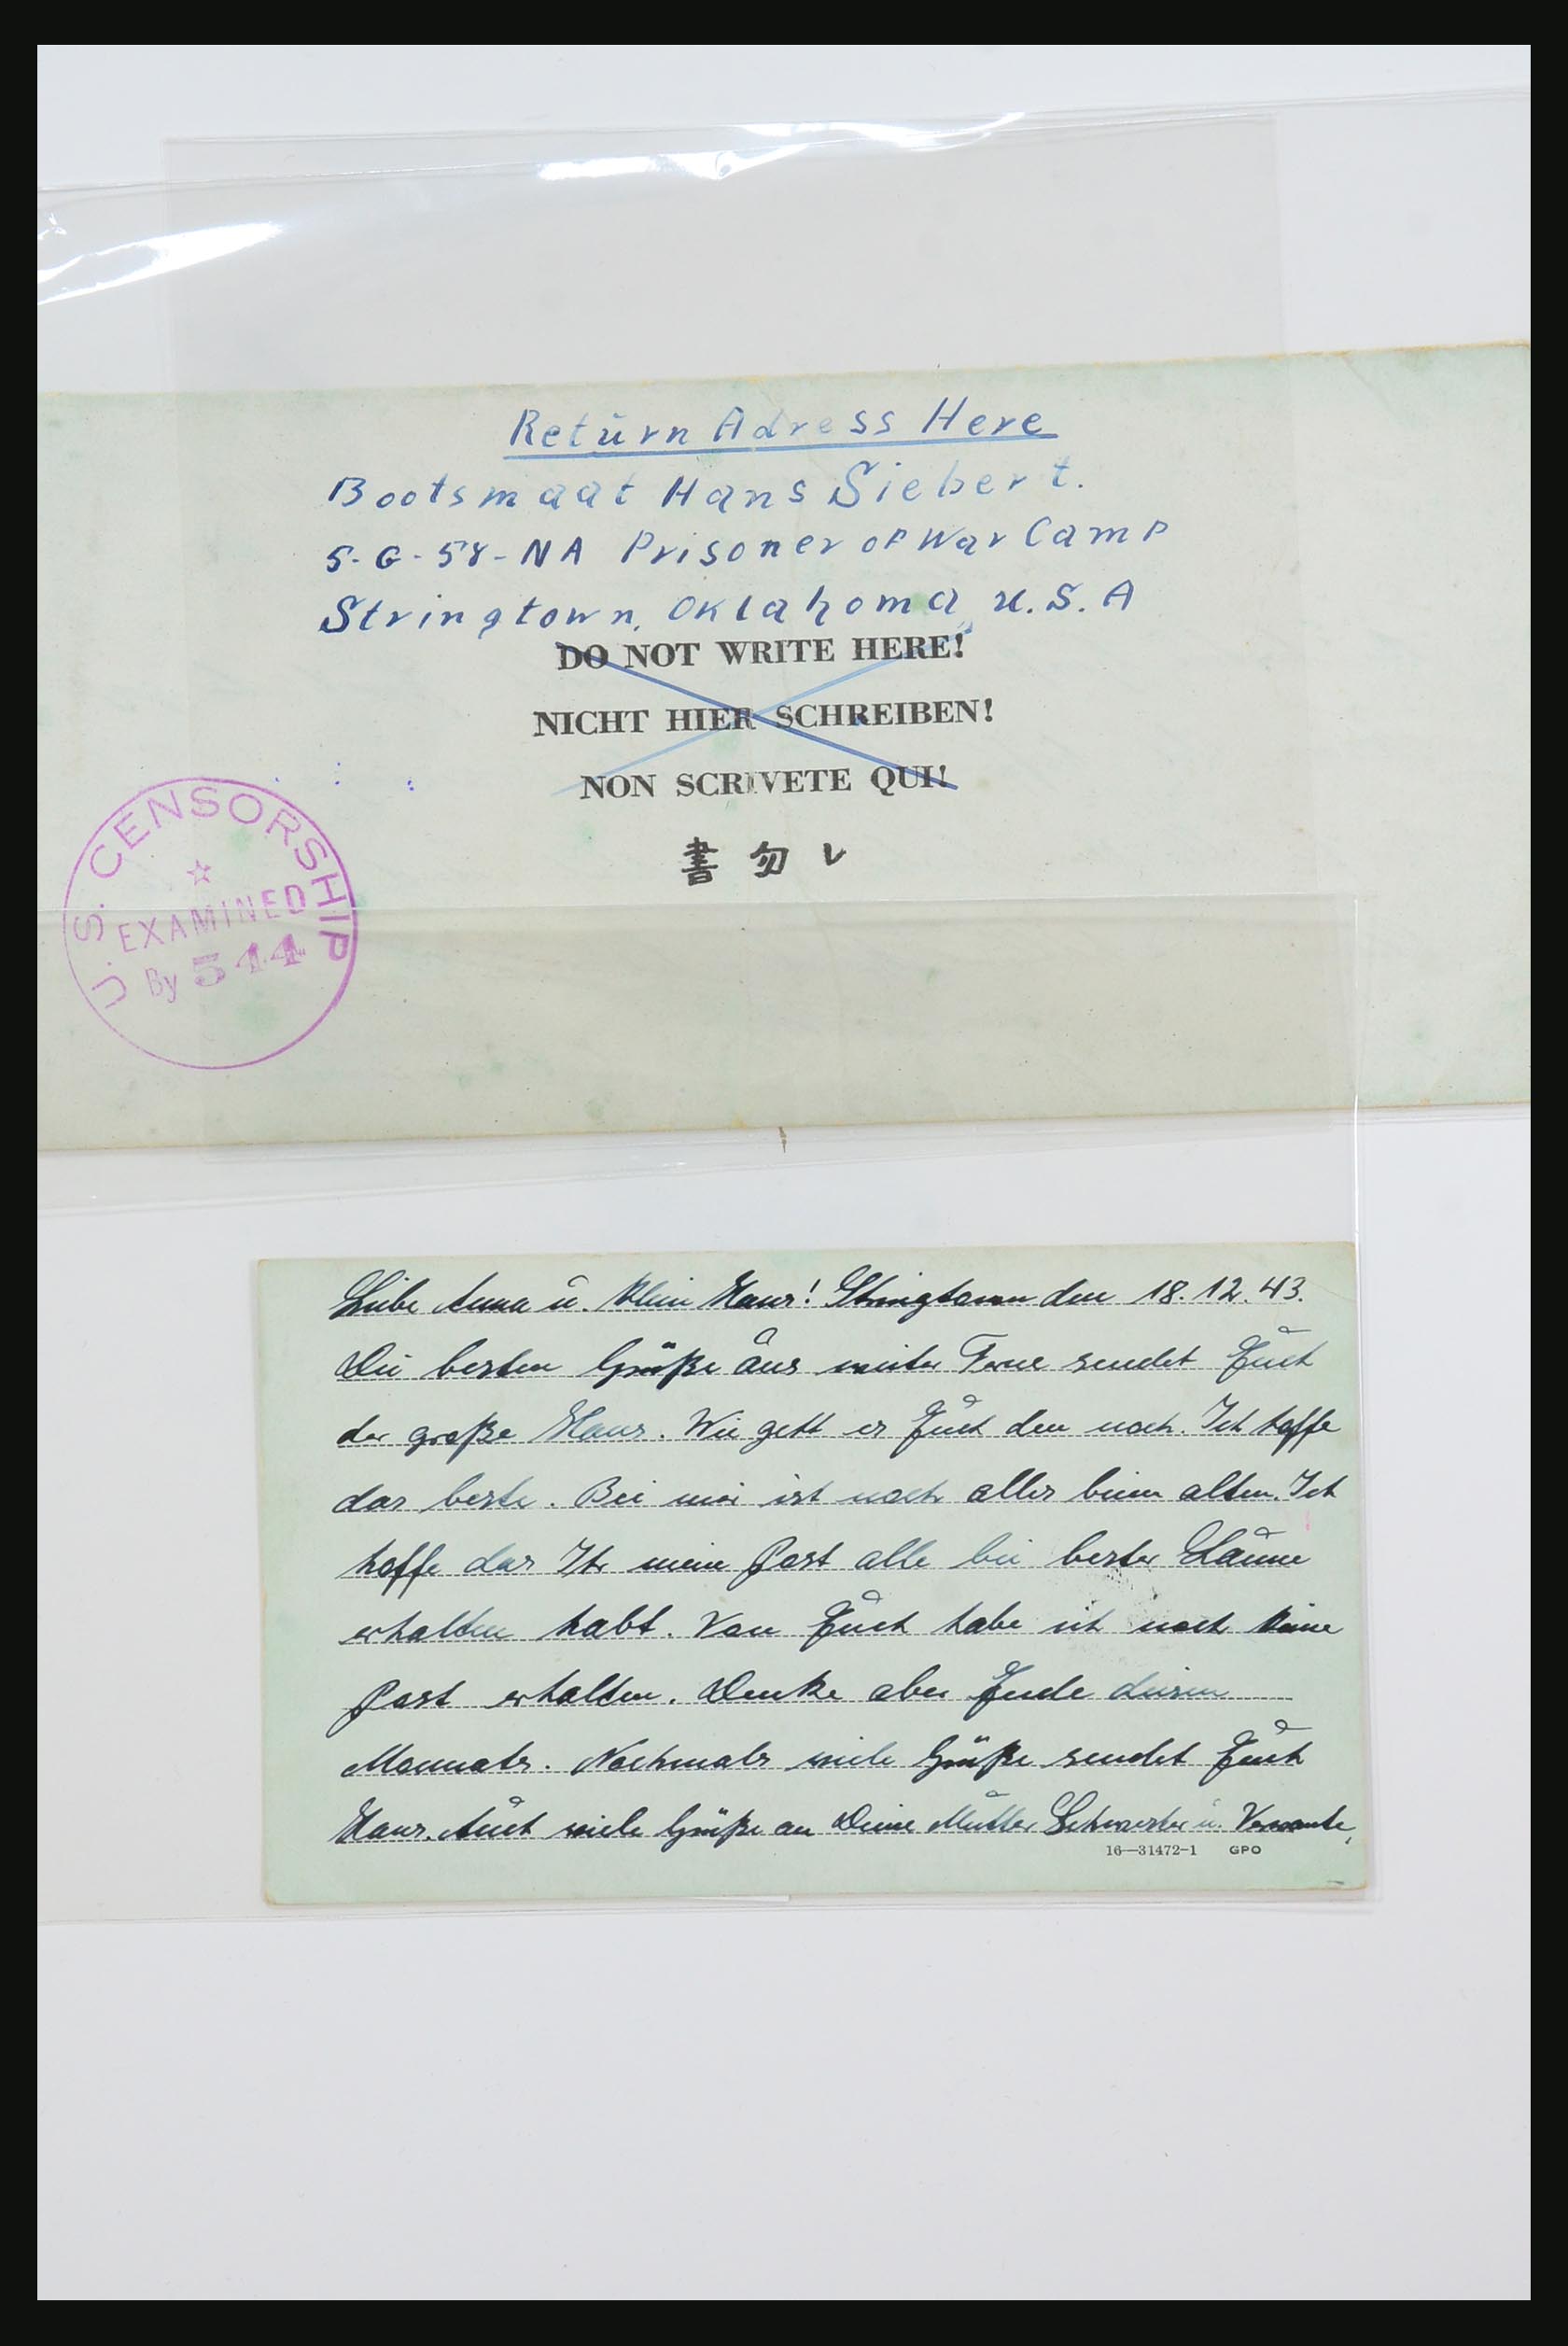 Retŭrn Adress Here
Bootsmaat Hans Siebert.
5-G-58-NA Prisoner of War Camp
Stringtown, Oklahoma, U.S.A
DO NOT WRITE HERE!
NICHT HIER SCHREIBEN!
NON SCRIVETE QUI!
書 勿 レ
U.S. CENSORSHIP
EXAMINED
By 544
Liebe Anna u. klein Hans! Stringtown den 18.12.43.
Die besten Grüße aus weiter Ferne sendet Euch
der große Hans. Wie geht es Euch den noch. Ich hoffe
das beste. Bei mir ist noch alles beim alten. Ich
hoffe das Ihr meine Post alle bei bester Laune
erhalten habt. Von Euch habe ich noch keine
Post erhalten. Denke aber Ende diesen
Monnats. Nochmals viele Grüße sendet Euch
Hans. Auch viele Grüße an Deine Mutter Schwester u. Verwante,
16—31472-1 GPO